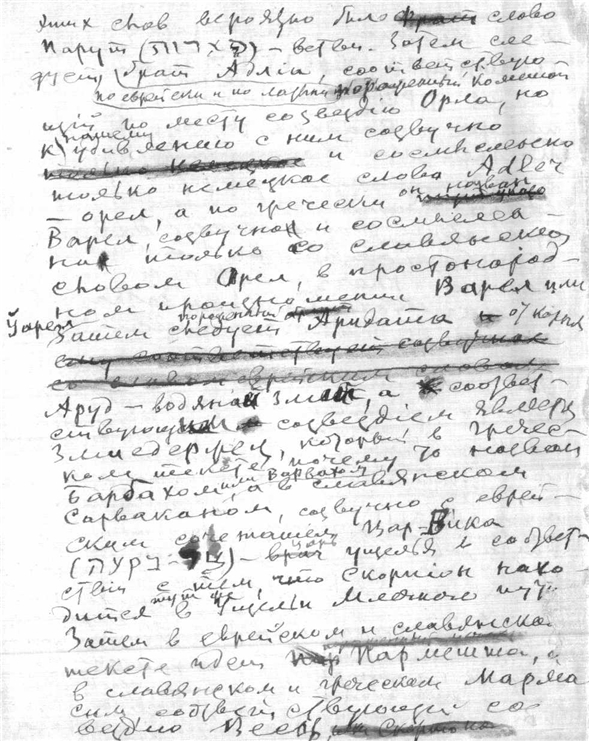 этих слов вероятно было слово
Парут (פארות) – ветви. Затем сле-
дует брат Адлiи, соответствую-
по еврейски и по латыни порошенный кометой
щiй по месту созвездию Орла, но
к нашему удивлению с ним созвучно
и сосмысленно
только немецкое слово Adler
– орел, а по гречески он назван
Варел, созвучное и сосмыслен-
ное только со славянским
словом Орел, в простонарод-
ном произношении Варел или
Ўарел
Затем следует Аридата от корня
Аруд – водяной змей, а соответ-
ствующим созвездием является
Змиедержец, который в гречес-
ком тексте почему то назван
Барбахом или Варвахом, а в славянском
Сарваканом, созвучно с еврей-
ским сочетанием Цар-Вика
– царь ущелья в соответ-
ствии с тем, что Скорпион нахо-
дится тут же в ущельи Млечного пути
Затем в еврейском и славянском
тексте идет Пармешта, а
в славянском и греческом Марма
сим соответствующий со-
звездию Весы,